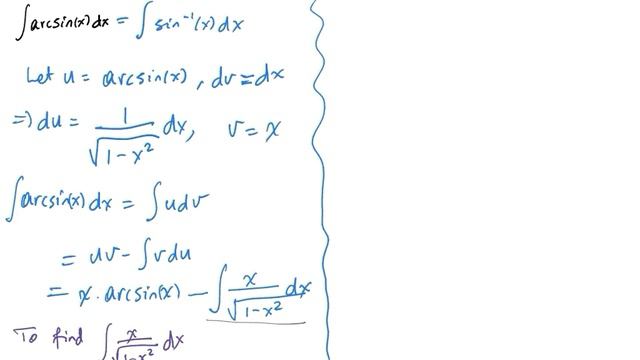 ∫arcsin(x)dx = ∫sin⁻¹(x)dx
Let u = arcsin(x), dv = dx
=) du = 1/√(1-x²) dx, v = x
∫arcsin(x)dx = ∫udv
= uv - ∫vdu
= x.arcsin(x) - ∫x/√(1-x²) dx
To find ∫x/√(1-x²) dx